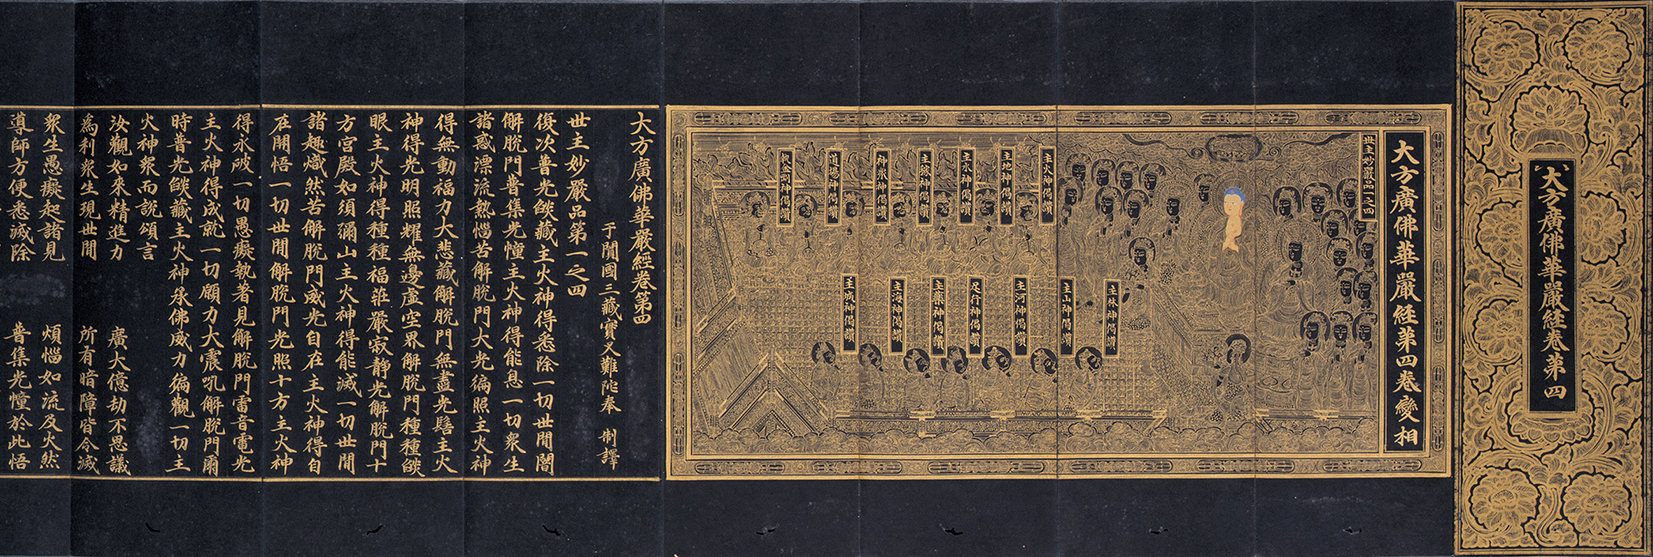 大方廣佛華嚴經卷第四
大方廣佛華嚴經第四卷變相
世主妙嚴品一之四
主火神偈讚
主水神偈讚
主海神偈讚
主河神偈讚
主林神偈讚
主山神偈讚
足行神偈讚
道場神偈讚
主城神偈讚
大方廣佛華嚴經卷第四
于闐國三藏實叉難陀奉 制譯
世主妙嚴品第一之四
復次普光燄藏主火神得悉除一切世間闇
解脫門普集光幢主火神得能息一切衆生
諸惑漂流熱惱苦解脫門大光徧照主火神
得無動福力大悲藏解脫門無盡光髻主火
神得光明照耀無邊虛空界解脫門種種燄
眼主火神得種種福莊嚴寂靜光解脫門十
方宮殿如須彌山主火神得能滅一切世間
諸趣熾然苦解脫門威光自在主火神得自
在開悟一切世間解脫門光照十方主火神
得永破一切愚癡執著見解脫門雷音電光
主火神得成就一切願力大震吼解脫門爾
時普光燄藏主火神承佛威力徧觀一切主
火神衆而說頌言
汝觀如來精進力 廣大億劫不思議
為利衆生現世間 所有暗障皆令滅
衆生愚癡起諸見 煩惱如流及火然
導師方便悉滅除 普集光幢於此悟